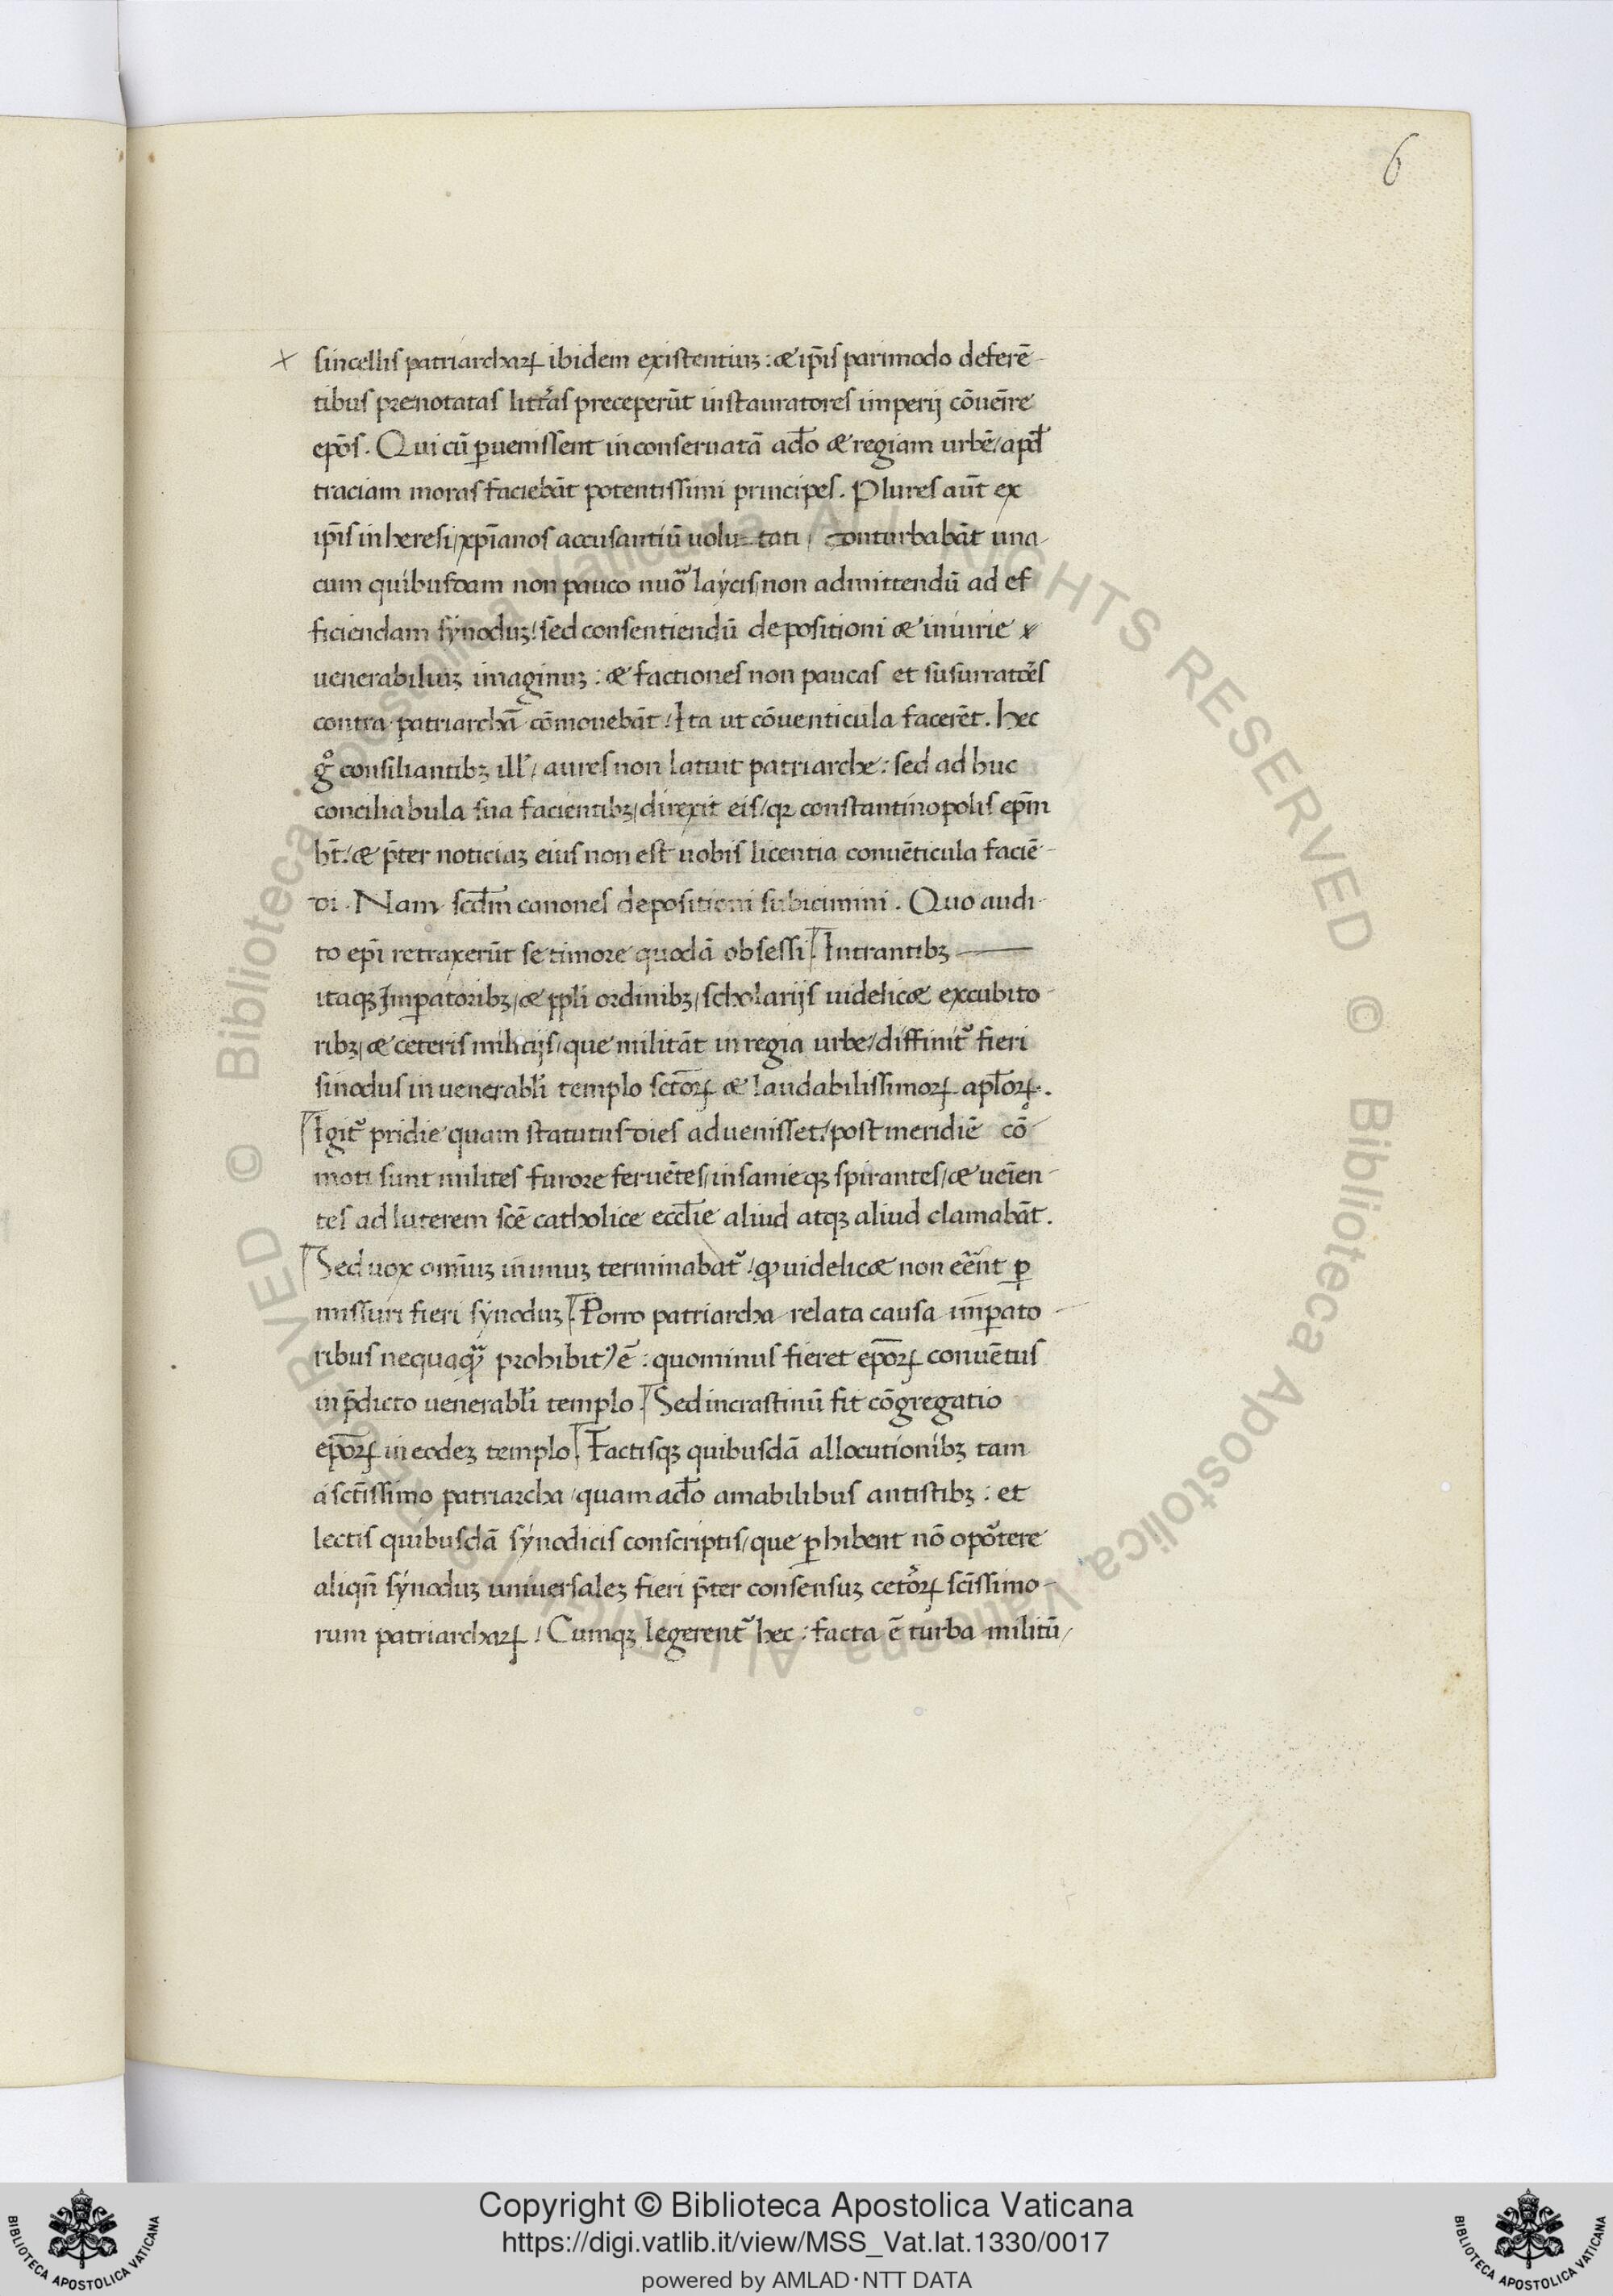 6
sincellis patriarchaꝝ ibidem existentiuꝫ : & ip̄is parimodo deferē-
tibus prenotatas litt̄as preceperūt instauratores imperij cōuenīre
ep̄os. Qui cū ꝑuenissent in conseruatā ad̄o & regiam urbē / apd̄
traciam moras faciebāt potentissimi principes. Plures aūt ex
ip̄is in heresi / xp̄ianos accusantiū uoluntati / conturbabāt una
cum quibusdam non pauco nuō laycis / non admittendū ad ef
ficiendam synoduꝫ ! sed consentiendū depositioni & iniurie
uenerabiliuꝫ imaginuꝫ : & factiones non paucas et susurratōes
contra patriarchā cōmouebāt / Ita ut cōuenticula facerēt. hec
gͦ consiliantibꝫ ill' / aures non latuit patriarche : sed ad huc
conciliabula sua facientibꝫ / direxit eis / qꝛ constantinopolis ep̄m
hт̄ : & p̄ter noticiaꝫ eius non est uobis licentia conuēticula faciē-
di. Nam scd̄m canones depositioni subicimini. Quo audi-
to ep̄i retraxerūt se timore quodā obsessi. Intrantibꝫ
itaqꝫ Imꝑatoribꝫ / & ppli ordinibꝫ / scholarijs uidelic& excubito-
ribꝫ / & ceteris milicijs / que militāt in regia urbe / diffinit᷑ fieri
sinodus in uenerabl̄i templo sctōꝝ & laudabilissimoꝝ apl̄oꝝ.
Igit᷑ pridie quam statutus dies aduenisset / post meridiē cō
moti sunt milites furore feruētes / insanieqꝫ spirantes / & ueīen-
tes ad luterem scē catholice eccl̄ie aliud atqꝫ aliud clamabāt.
Sed uox om̄iuꝫ in unuꝫ terminabat᷑ / ꝙ uidelic& non eēnt ꝑ
missuri fieri synoduꝫ. Porro patriarcha relata causa imꝑato-
ribus nequaqᷓ prohibit᷒ ē : quominus fieret ep̄oꝝ conuētus
in p̄dicto uenerabl̄i templo. Sed in crastinū fit cōgregatio
ep̄oꝝ in eodeꝫ templo. Factisqꝫ quibusdā allocutionibꝫ tam
a sct̄issimo patriarcha / quam ad̄o amabilibus antistibꝫ : et
lectis quibusdā synodicis conscriptis / que ꝑhibent nō opōtere
aliqn̄ synoduꝫ uniuersaleꝫ fieri p̄ter consensuꝫ cet̄oꝝ sc̄issimo-
rum patriarchaꝝ ! Cumqꝫ legerent᷑ hec : facta ē turba militū /
Copyright © Biblioteca Apostolica Vaticana
https://digi.vatlib.it/view/MSS_Vat.lat.1330/0017
powered by AMLAD·NTT DATA